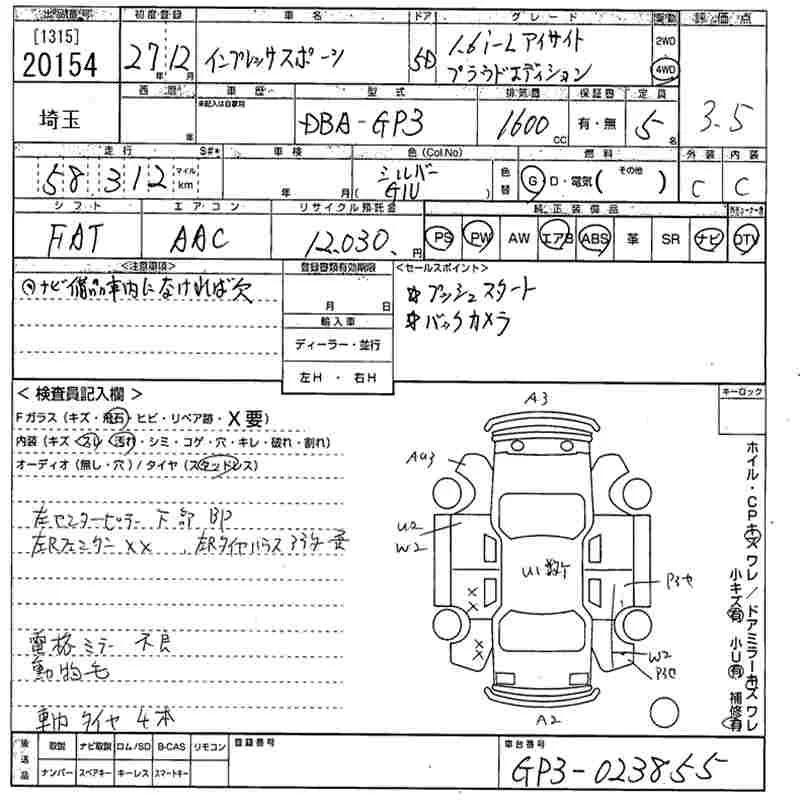 出品番号 初度登録 車名 ドア グレード 駆動 評価点
[1315]
20154 27年12月 インプレッサスポーツ 5D 1.6i-Lアイサイト
プラウドエディション
2WD
4WD
西暦 車歴 型式 排気量 保証書 定員
未記入は自家用
埼玉 年 DBA-GP3 1600cc 有・無 5名 3.5
走行 S#* 車検 色(Col No) 色替 燃料 外装 内装
58312 マイル km 年 月 シルバー
(G1U) G D・電気( その他 ) C C
シフト エアコン リサイクル預託金 純正装備品
FAT AAC 12,030.円 PS PW AW エアB ABS 革 SR ナビ DTV
<注意事項> 登録書類有効期限 <セールスポイント>
ナビ備品車内になければ欠 月 日
☆プッシュスタート
☆バックカメラ
輸入車
ディーラー・並行
左H・右H
<検査員記入欄> キーロック
Fガラス(キズ・飛石・ヒビ・リペア跡・X要)
内装(キズ・スレ・汚れ・シミ・コゲ・穴・キレ・破れ・割れ)
オーディオ(無し・穴)/タイヤ(スタッドレス)
左センターピラー下部BP
左Rフェンダー××
電格ミラー不良
動物毛
車内タイヤ4本
A3
AU3
U2
W2
U1数ケ
P3セ
××
××
W2
P3セ
A2
ホイル・CPキズワレ/ドアミラーキズワレ
小キズ有 小U有 補修有
後送品 取説 ナビ取説 ロム/SD B-CAS リモコン 登録番号 車台番号
ナンバー スペアキー キーレス スマートキー
GP3-023855